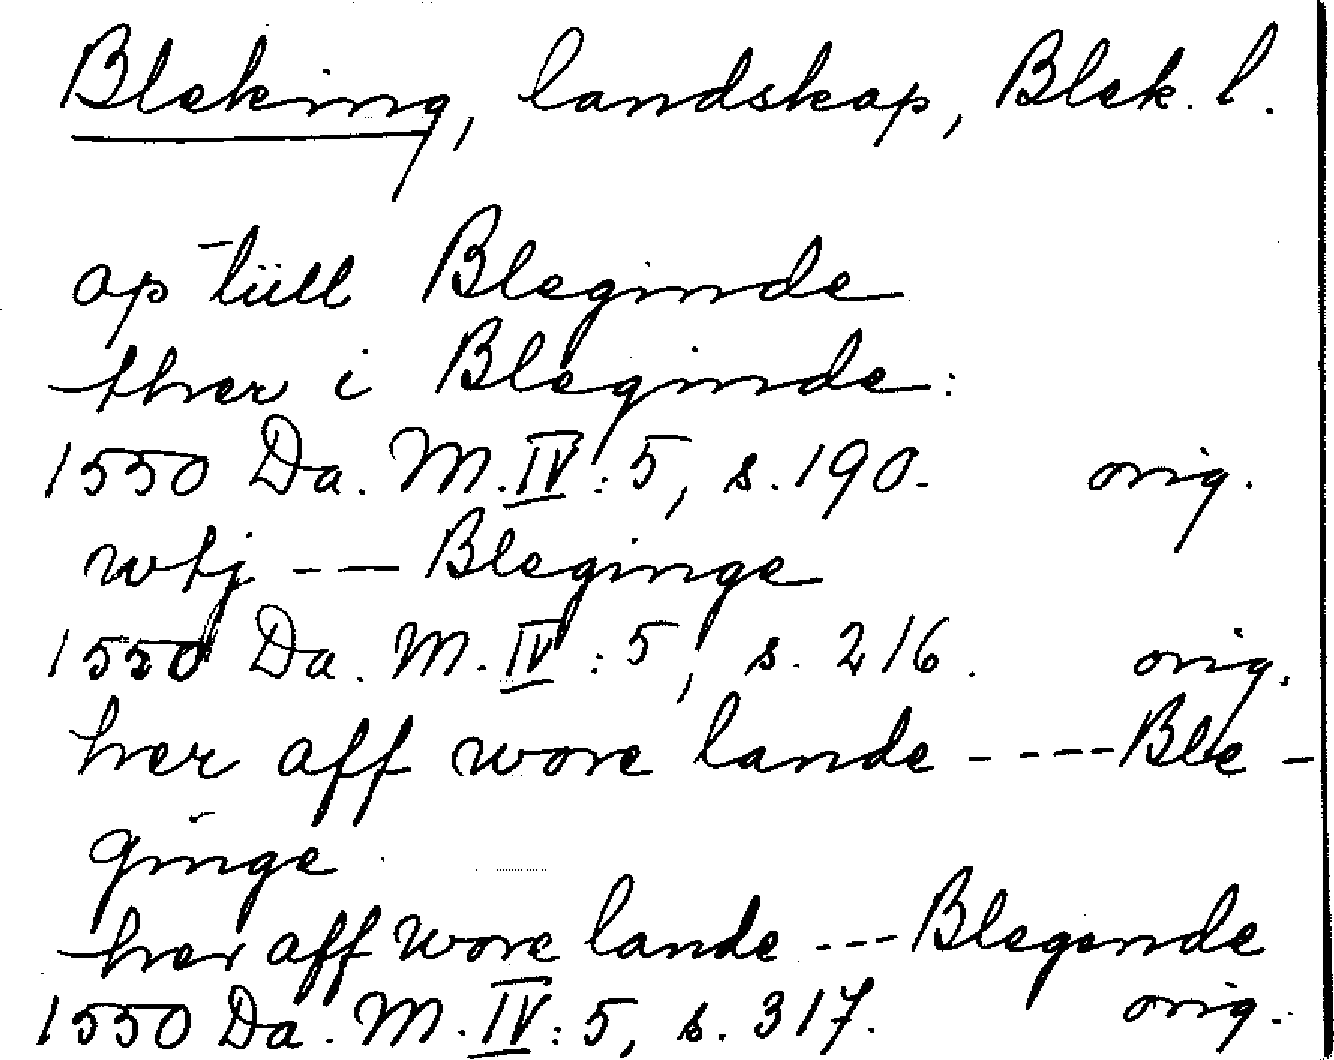 Bleking, landskap, Blek. l.
op tiill Bleginde
ther i Bleginde:
1550 Da. M. IV: 5, s. 190. orig.
wtj --- Bleginge
1550 Da. M. IV: 5, s. 216. orig.
her aff wore lande ---- Ble-
ginge
her aff wore lande --- Blegende
1550 Da. M. IV: 5, s. 317. orig.